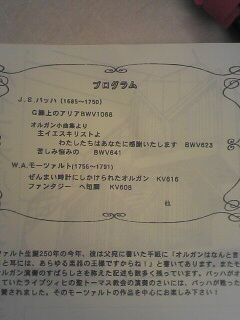 プログラム
J.S.バッハ (1685〜1750)
G線上のアリアBWV1068
オルガン小曲集より
主イエスキリストよ
わたしたちはあなたに感謝いたします BWV623
苦しみ悩みの BWV641
W.A.モーツァルト(1756〜1791)
ぜんまい時計にしかけられたオルガン KV616
ファンタジー ヘ短調 KV608
他
ツァルト生誕250年の今年、彼は父宛に書いた手紙に「オルガンはなんと言っ
と耳には、あらゆる楽器の王様ですからね!」と書いております。またモ
オルガン演奏のすばらしさを称えた記述も数多く残っています。バッハがオ
ていたライプツィヒの聖トーマス教会の演奏のさいには、バッハが甦った
賛されました。そのモーツァルトの作品を中心にお楽しみ下さい!